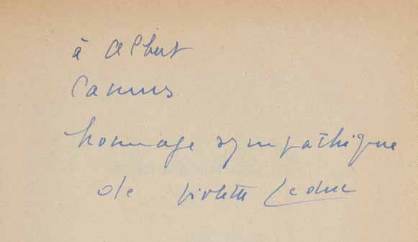 à Albert
Camus
hommage sympathique
de Violette Leduc